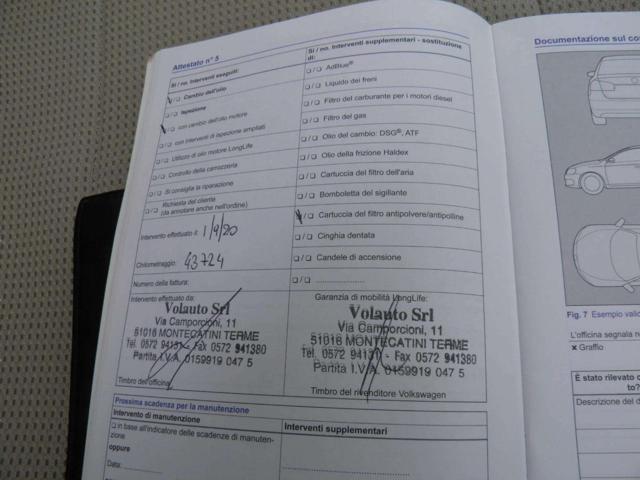 Attestato n° 5
Si / no. Interventi eseguiti:
❑/❑ Cambio dell'olio
❑/❑ Ispezione
❑/❑ con cambio dell'olio motore
❑/❑ con interventi di ispezione ampliati
❑/❑ Utilizzo di olio motore LongLife
❑/❑ Controllo della carrozzeria
❑/❑ Si consiglia la riparazione
❑/❑ Richiesta del cliente
(da annotare anche nell'ordine)
Intervento effettuato il: 1/9/20
Chilometraggio: 43724
Numero della fattura:
Intervento effettuato da:
Volauto Srl
Via Camporcioni, 11
51016 MONTECATINI TERME
Tel. 0572 - Fax 0572 941380
Partita I.V.A. 0159919 047 5
Timbro dell'officina
Si / no. Interventi supplementari - sostituzione
di:
❑/❑ AdBlue®
❑/❑ Liquido dei freni
❑/❑ Filtro del carburante per i motori diesel
❑/❑ Filtro del gas
❑/❑ Olio del cambio: DSG®, ATF
❑/❑ Olio della frizione Haldex
❑/❑ Cartuccia del filtro dell'aria
❑/❑ Bomboletta del sigillante
❑/❑ Cartuccia del filtro antipolvere/antipolline
❑/❑ Cinghia dentata
❑/❑ Candele di accensione
❑/❑ ....................
Garanzia di mobilità LongLife:
Volauto Srl
Via Camporcioni, 11
51016 MONTECATINI TERME
Tel. 0572 - Fax 0572 941380
Partita I.V.A. 0159919 047 5
Timbro del rivenditore Volkswagen
Prossima scadenza per la manutenzione
Intervento di manutenzione
❑ in base all'indicatore delle scadenze di manuten-
zione
oppure
Data: ....................
Interventi supplementari
Documentazione sul
Fig. 7 Esempio
L'officina segnala
× Graffio
È stato rilevato
to?
Descrizione del